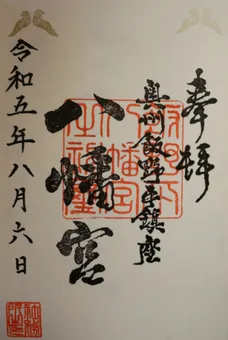 奉拝
奥州飯野平鎮座
八幡宮
令和五年八月六日